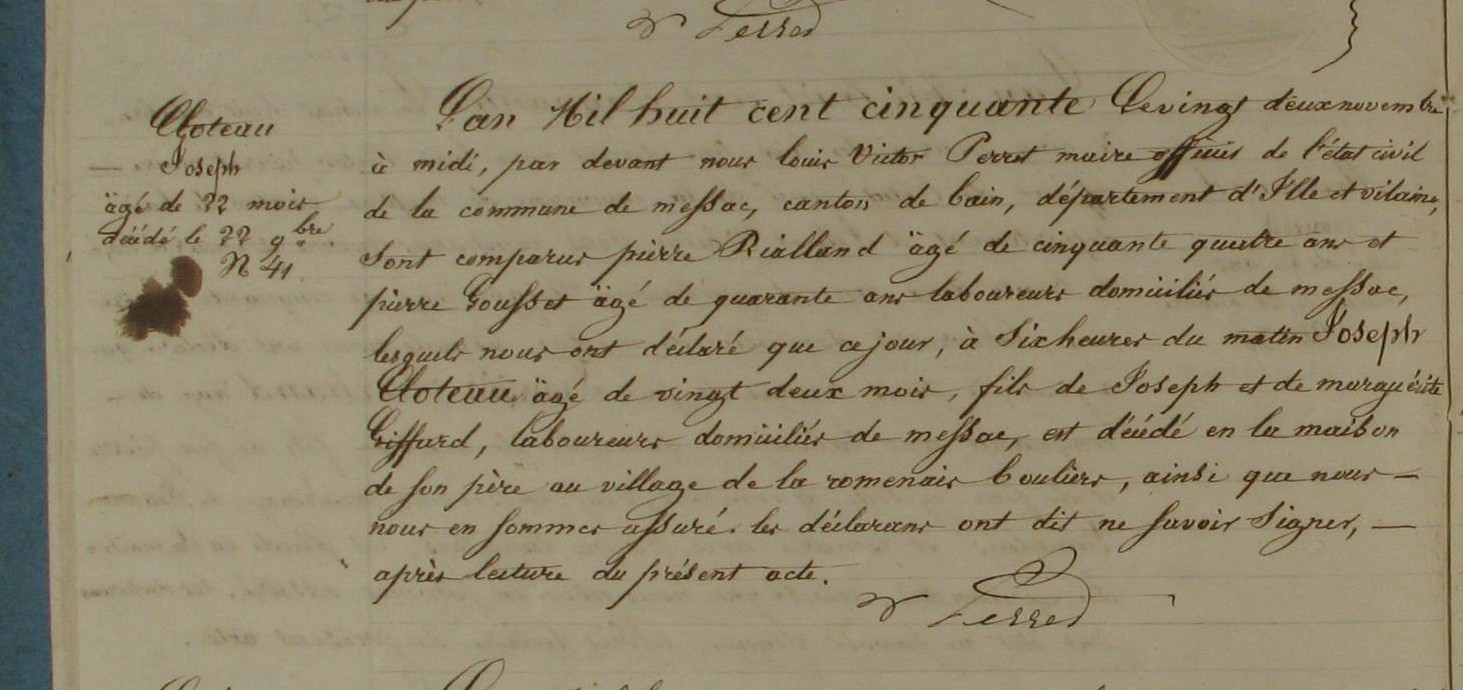 Perret
Cloteau
Joseph
âgé de 22 mois
décédé le 22 9bre
N 41
L'an Mil huit cent cinquante Le vingt deux novembre
à midi, par devant nous louis Victor Perret maire officier de l'état civil
de la commune de messac, canton de bain, département d'Ille et vilaine,
sont comparus pierre Rialland âgé de cinquante quatre ans et
pierre Gousset âgé de quarante ans laboureurs domiciliés de messac,
lesquels nous ont déclaré que ce jour, à six heures du matin Joseph
Cloteau âgé de vingt deux mois, fils de Joseph et de marguérite
Giffard, laboureurs domiciliés de messac, est décédé en la maison
de son père au village de la romenais bouliers, ainsi que nous —
nous en sommes assuré. les déclarans ont dit ne savoir signer, —
après lecture du présent acte.
Perret